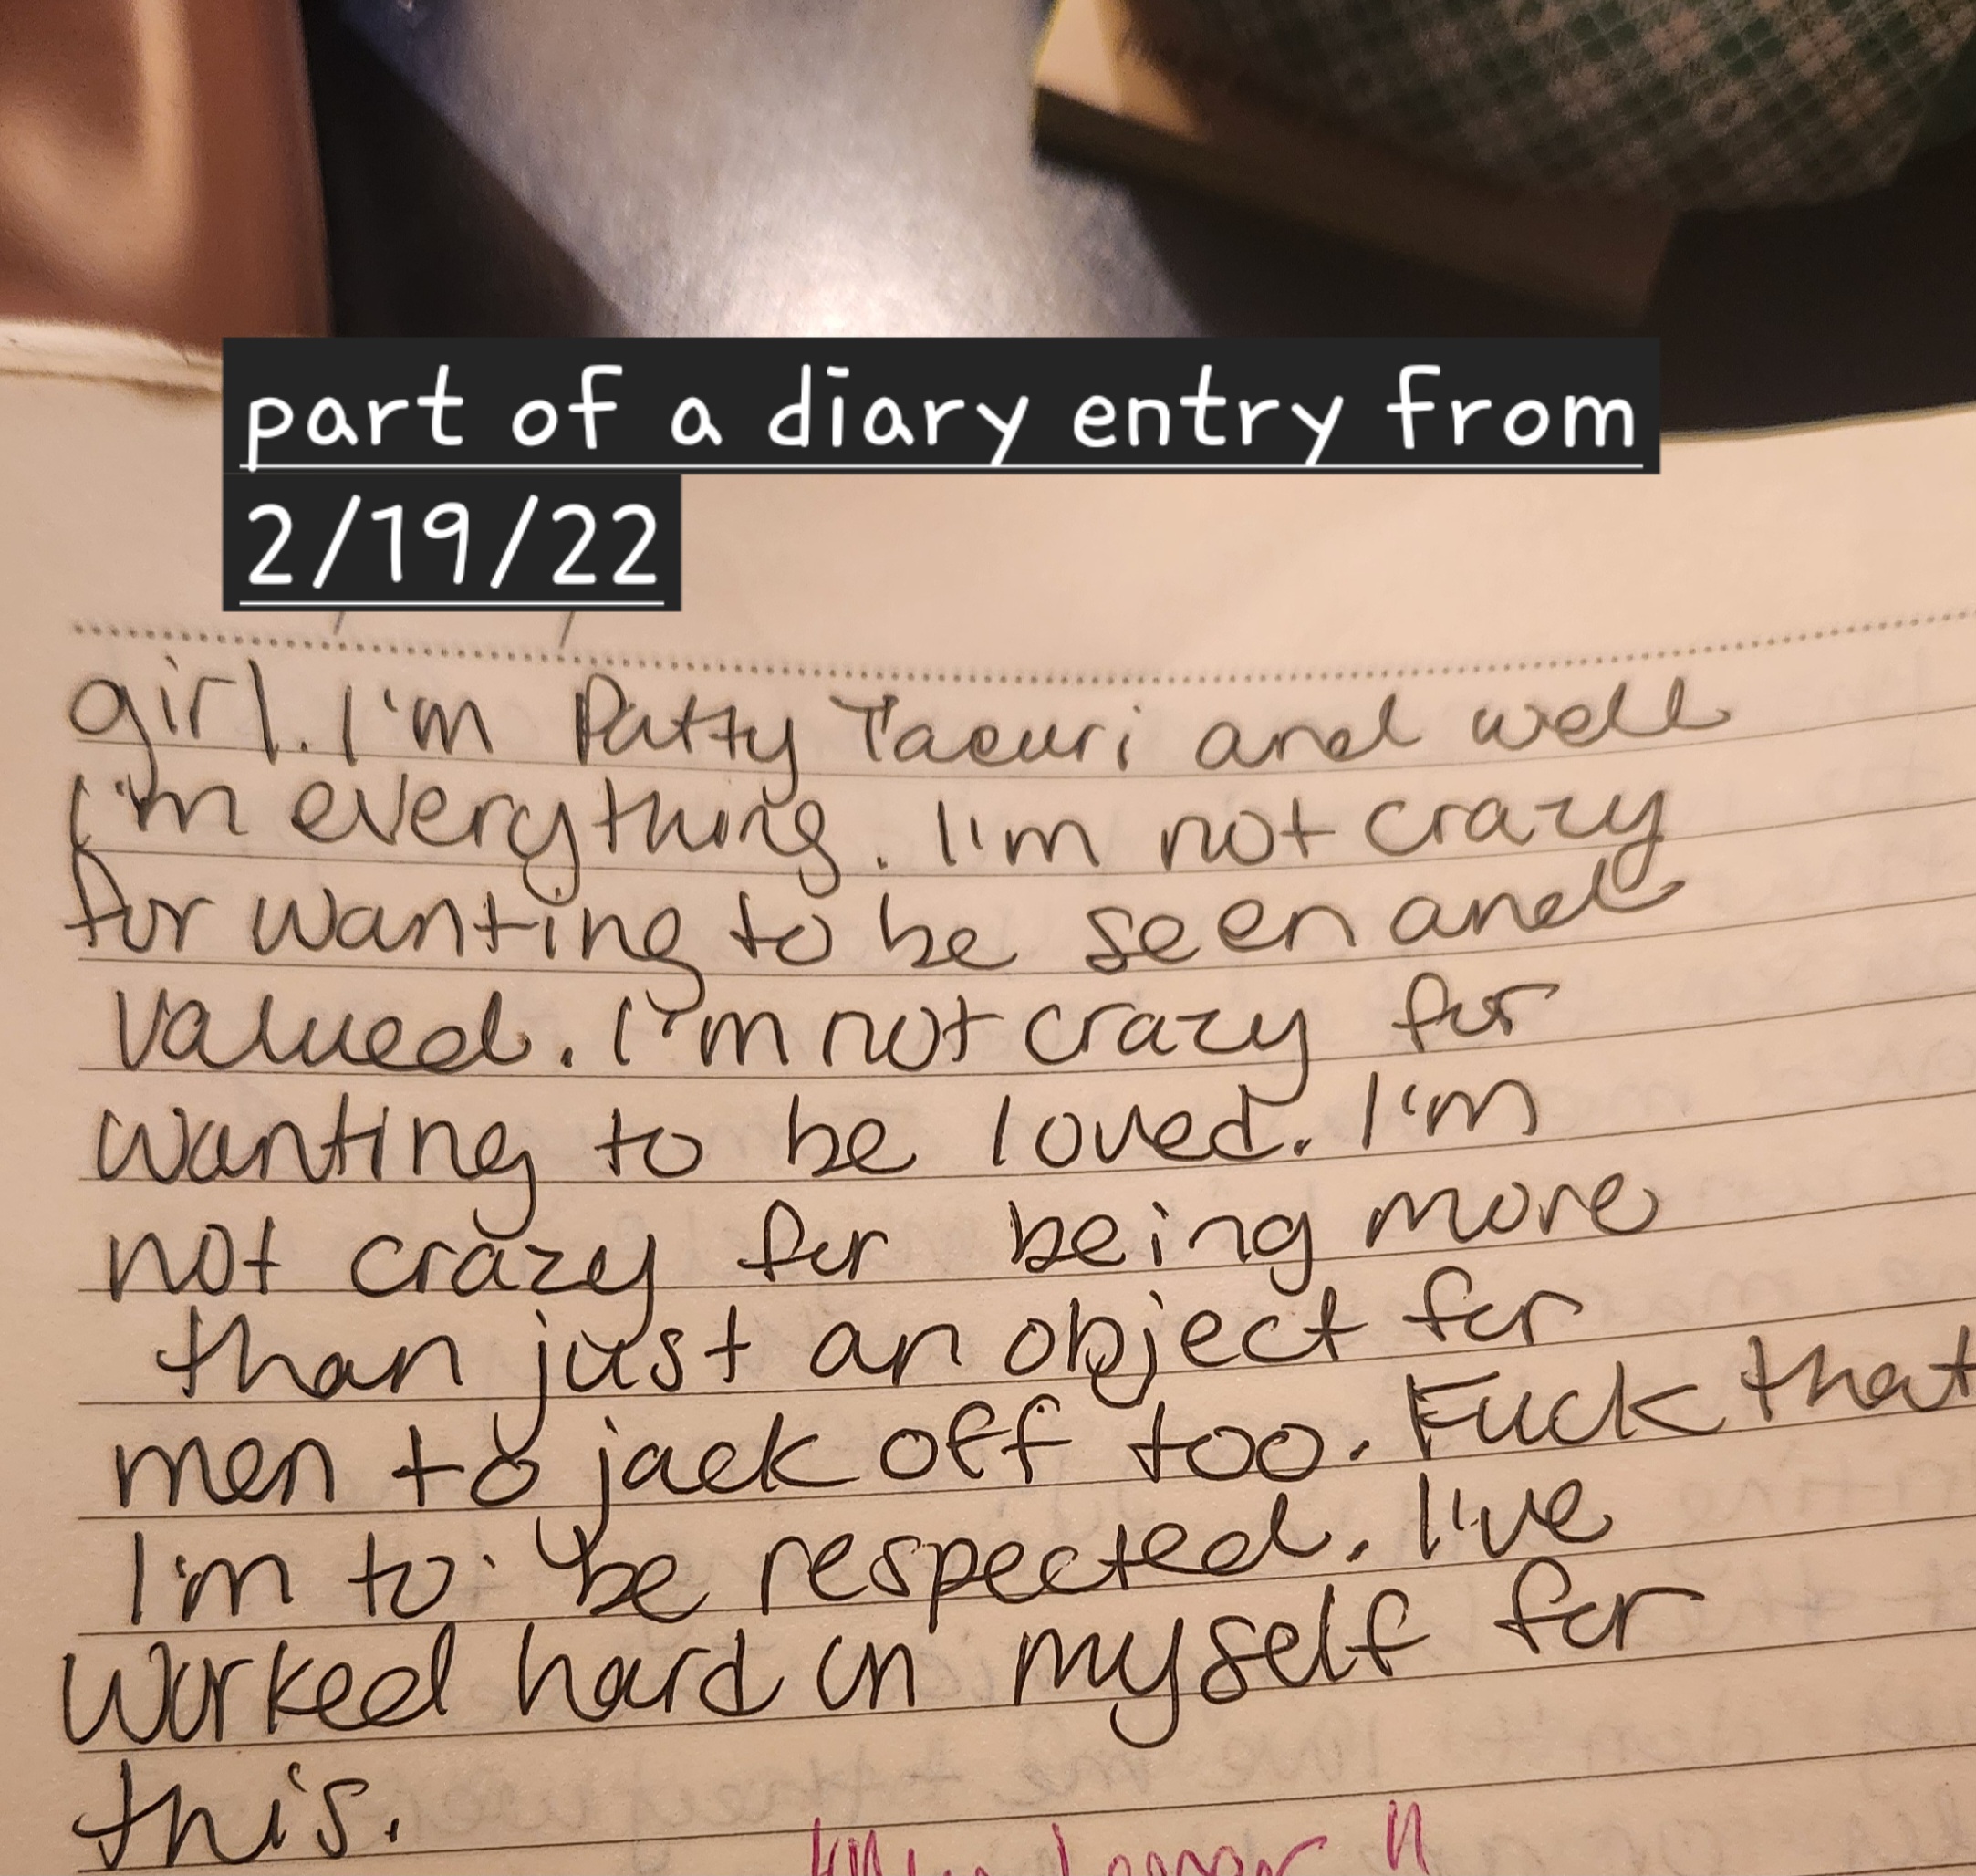 part of a diary entry from
2/19/22
girl. I'm Patty Tacuri and well
I'm everything. I'm not crazy
for wanting to be seen and
valued. I'm not crazy for
wanting to be loved. I'm
not crazy for being more
than just an object for
men to jack off too. Fuck that
I'm to be respected. I've
worked hard on myself for
this.